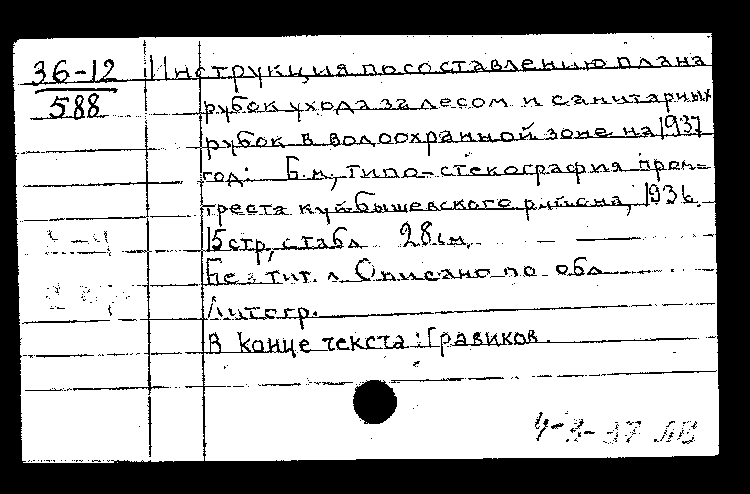 36-12 Инструкция по составлению плана
588 рубок ухода за лесом и санитарных
рубок в водоохранной зоне на 1937
год: Б.м., типо-стеклография пром-
треста куйбышевского района, 1936.
15 стр, с табл 28 см.
Без тит. л Описано по обл
Литогр.
В конце текста: Гравиков.
4-3-37 ЛВ